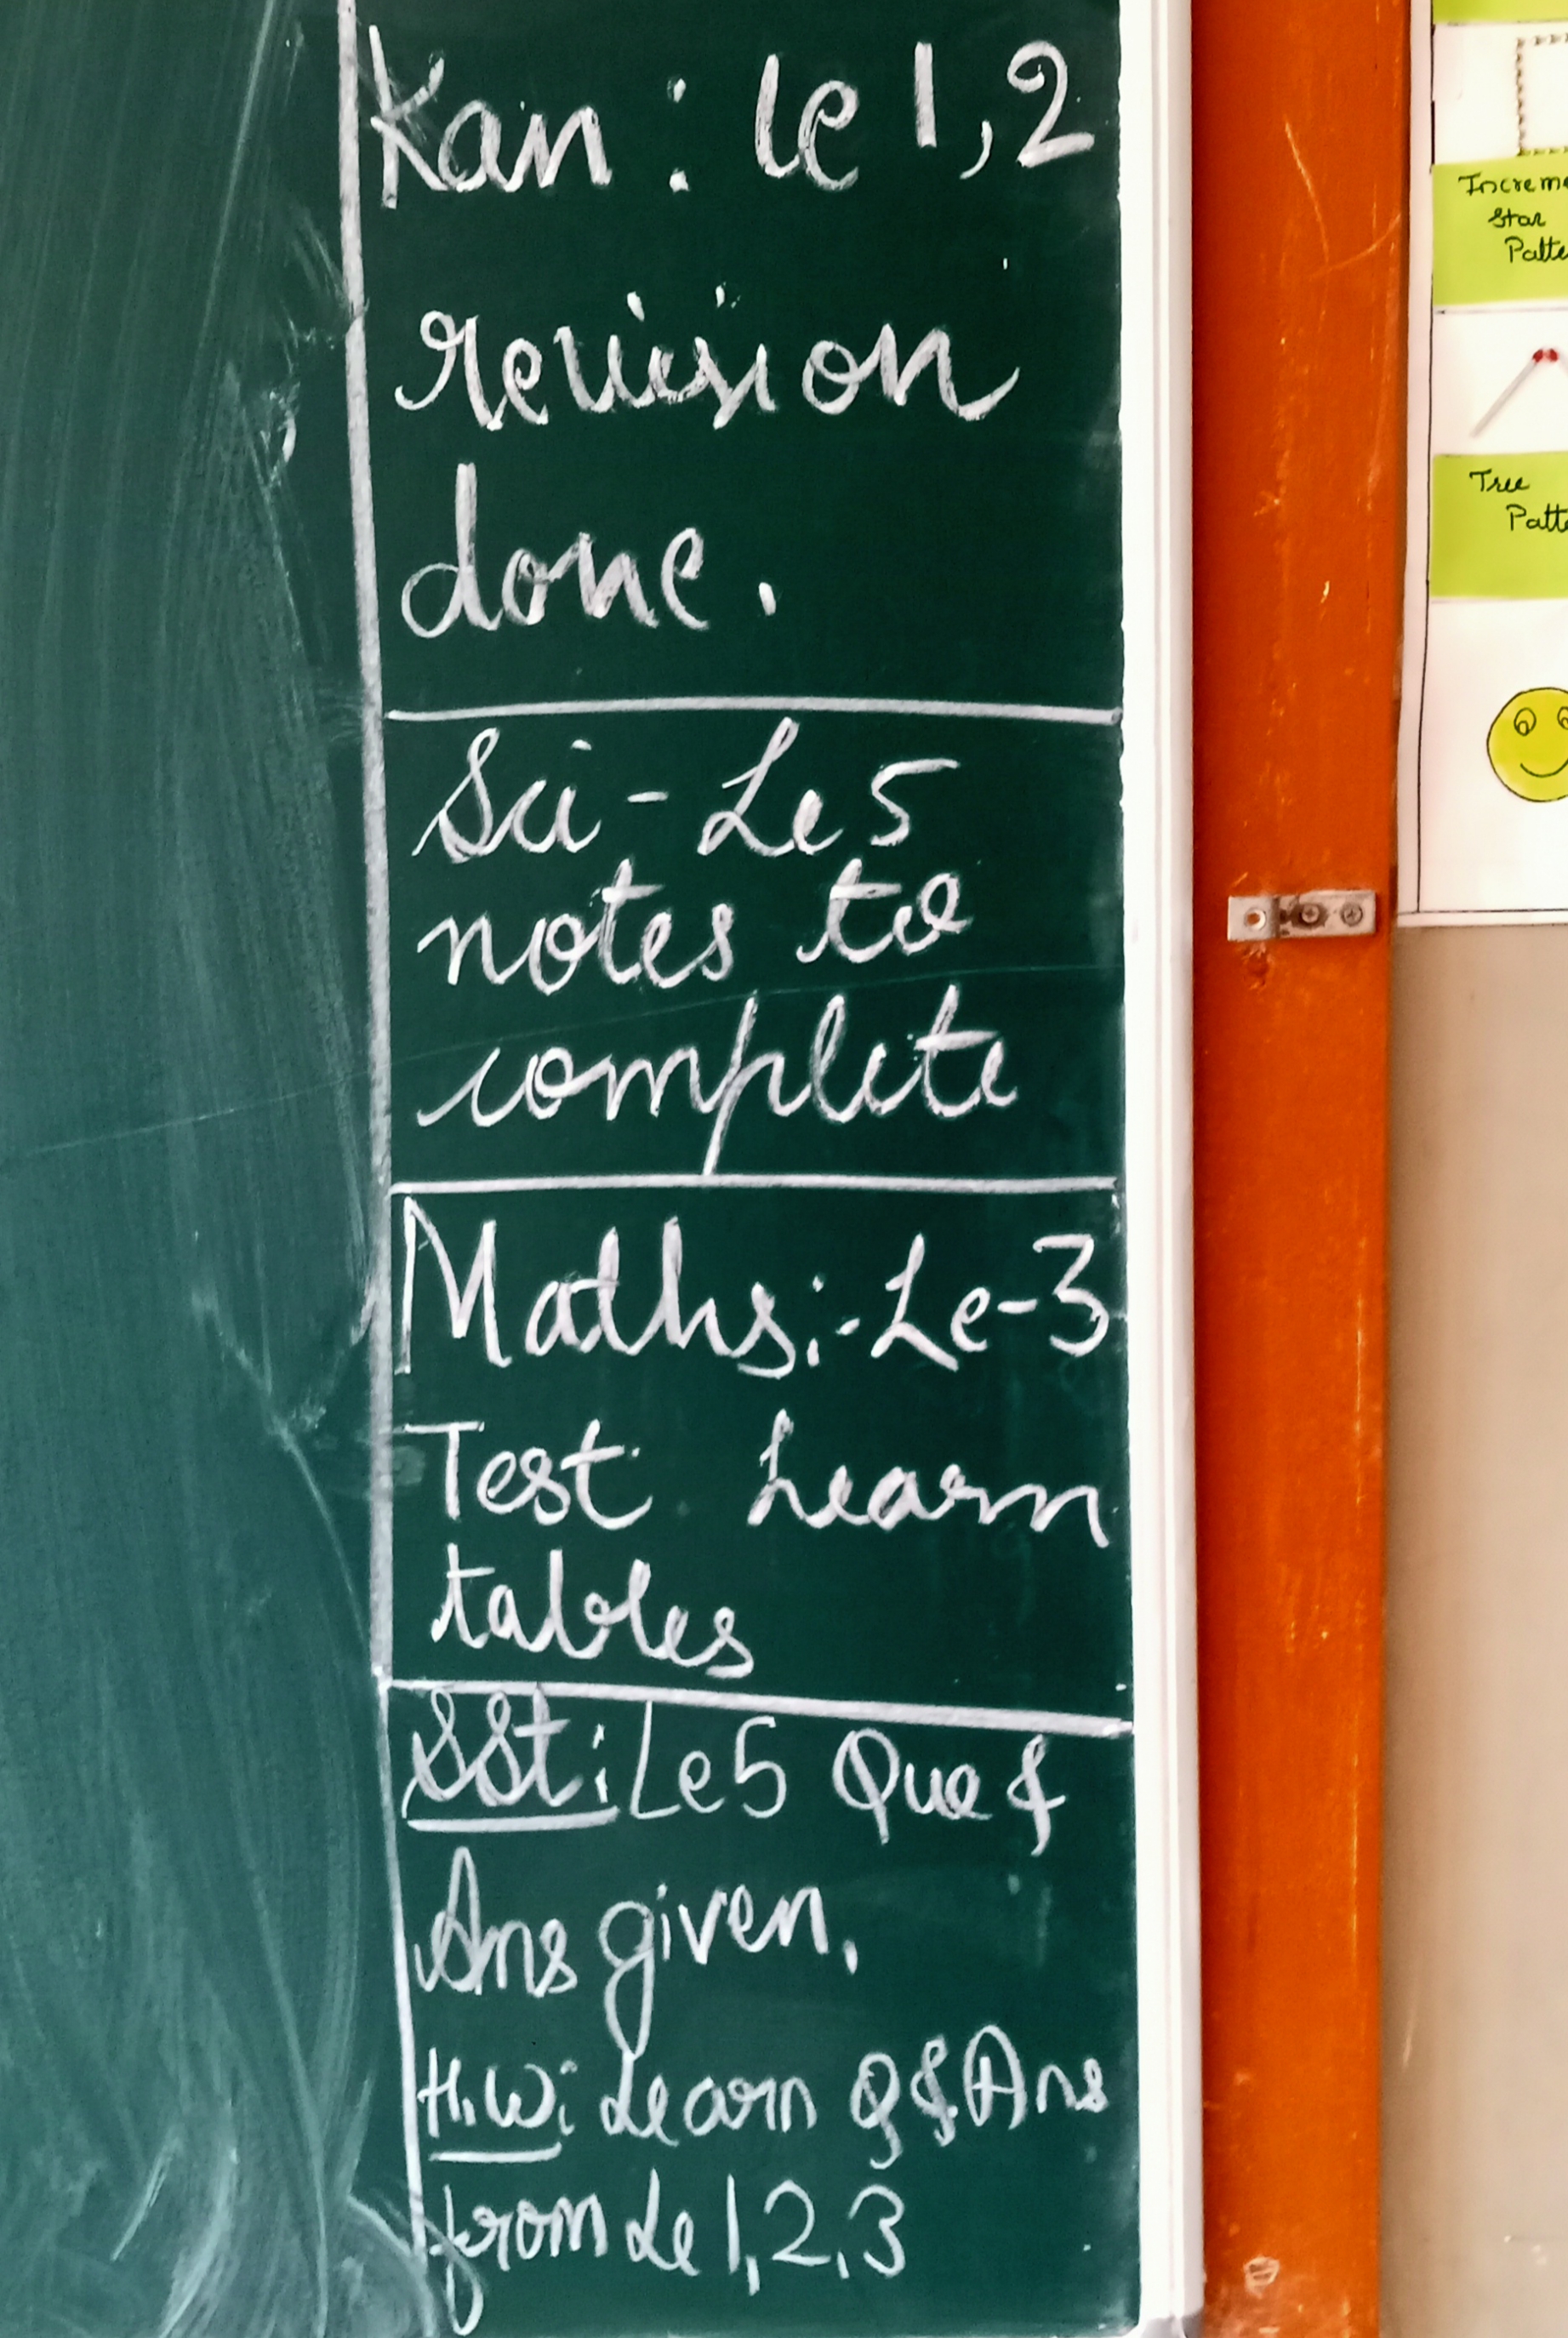 Kan : le 1, 2
revision
done.
Sci - Le 5
notes to
complete
Maths:- Le-3
Test Learn
tables
SSt: Le 5 Que &
Ans given.
H.W: Learn Q & Ans
from Le 1, 2, 3
Star
Tree